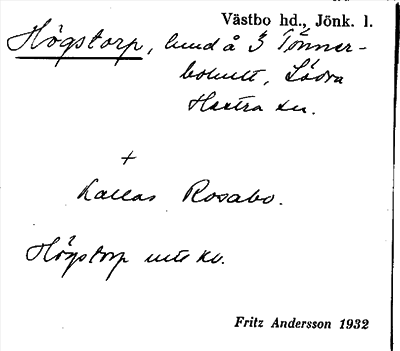 Västbo hd., Jönk. l.
Högstorp, lund å 3 Tönner-
bohult, Södra
Hestra sn.
+
Kallas Rosabo.
Högstorp kv.
Fritz Andersson 1932